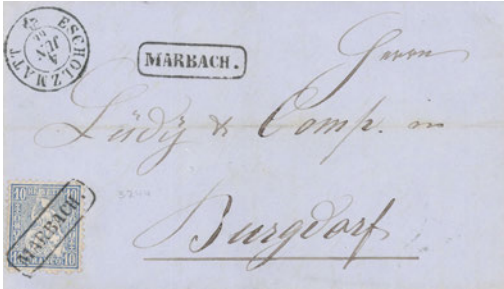 ESCHOLZMATT
4
JUN
MARBACH.
Herrn
Lüdÿ & Comp. in
Burgdorf
10 10
MARBACH.
10 10